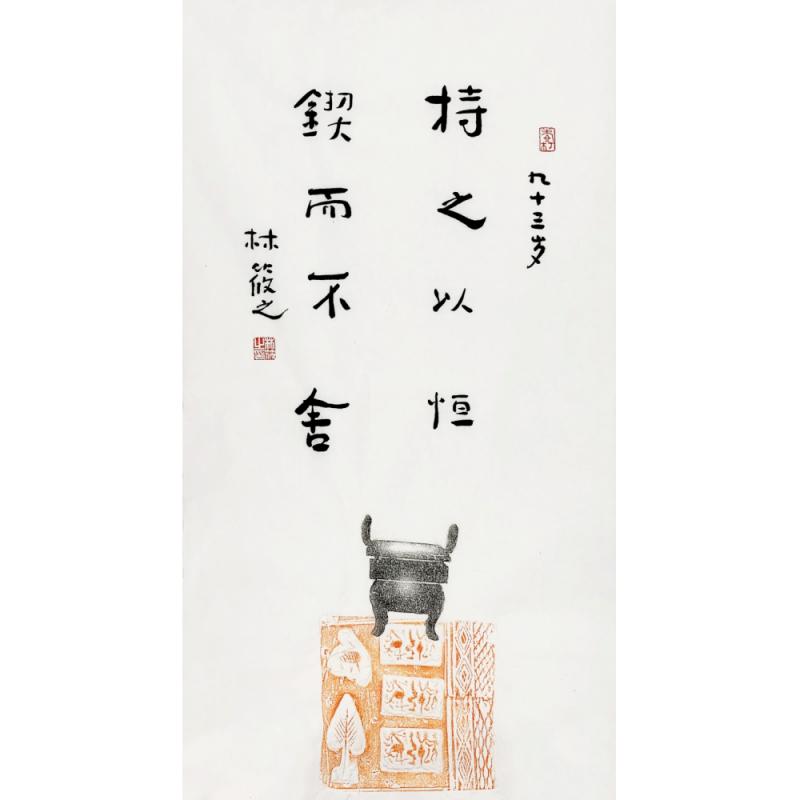 九十三岁
持之以恒
鍥而不舍
林筱之